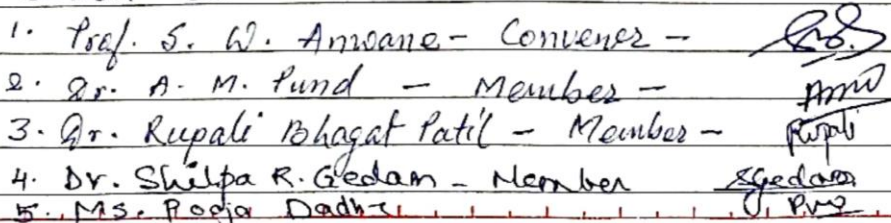 1. Prof. S. W. Anwane - Convener -
2. Dr. A. M. Pund - Member -
3. Dr. Rupali Bhagat Patil - Member - Rupali
4. Dr. Shilpa R. Gedam - Member SGedam
5. Ms. Pooja